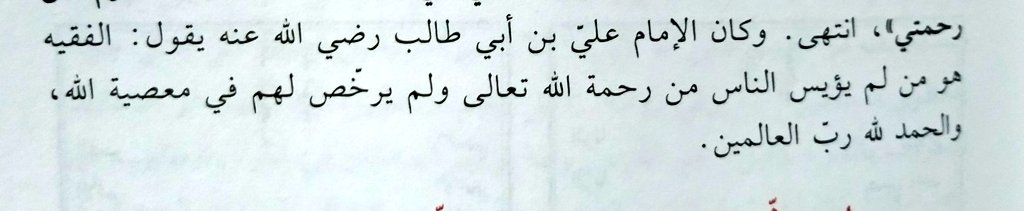 رحمتي»، انتهى. وكان الإمام عليّ بن أبي طالب رضي الله عنه يقول: الفقيه
هو من لم يؤيس الناس من رحمة الله تعالى ولم يرخّص لهم في معصية الله،
والحمد لله ربّ العالمين.